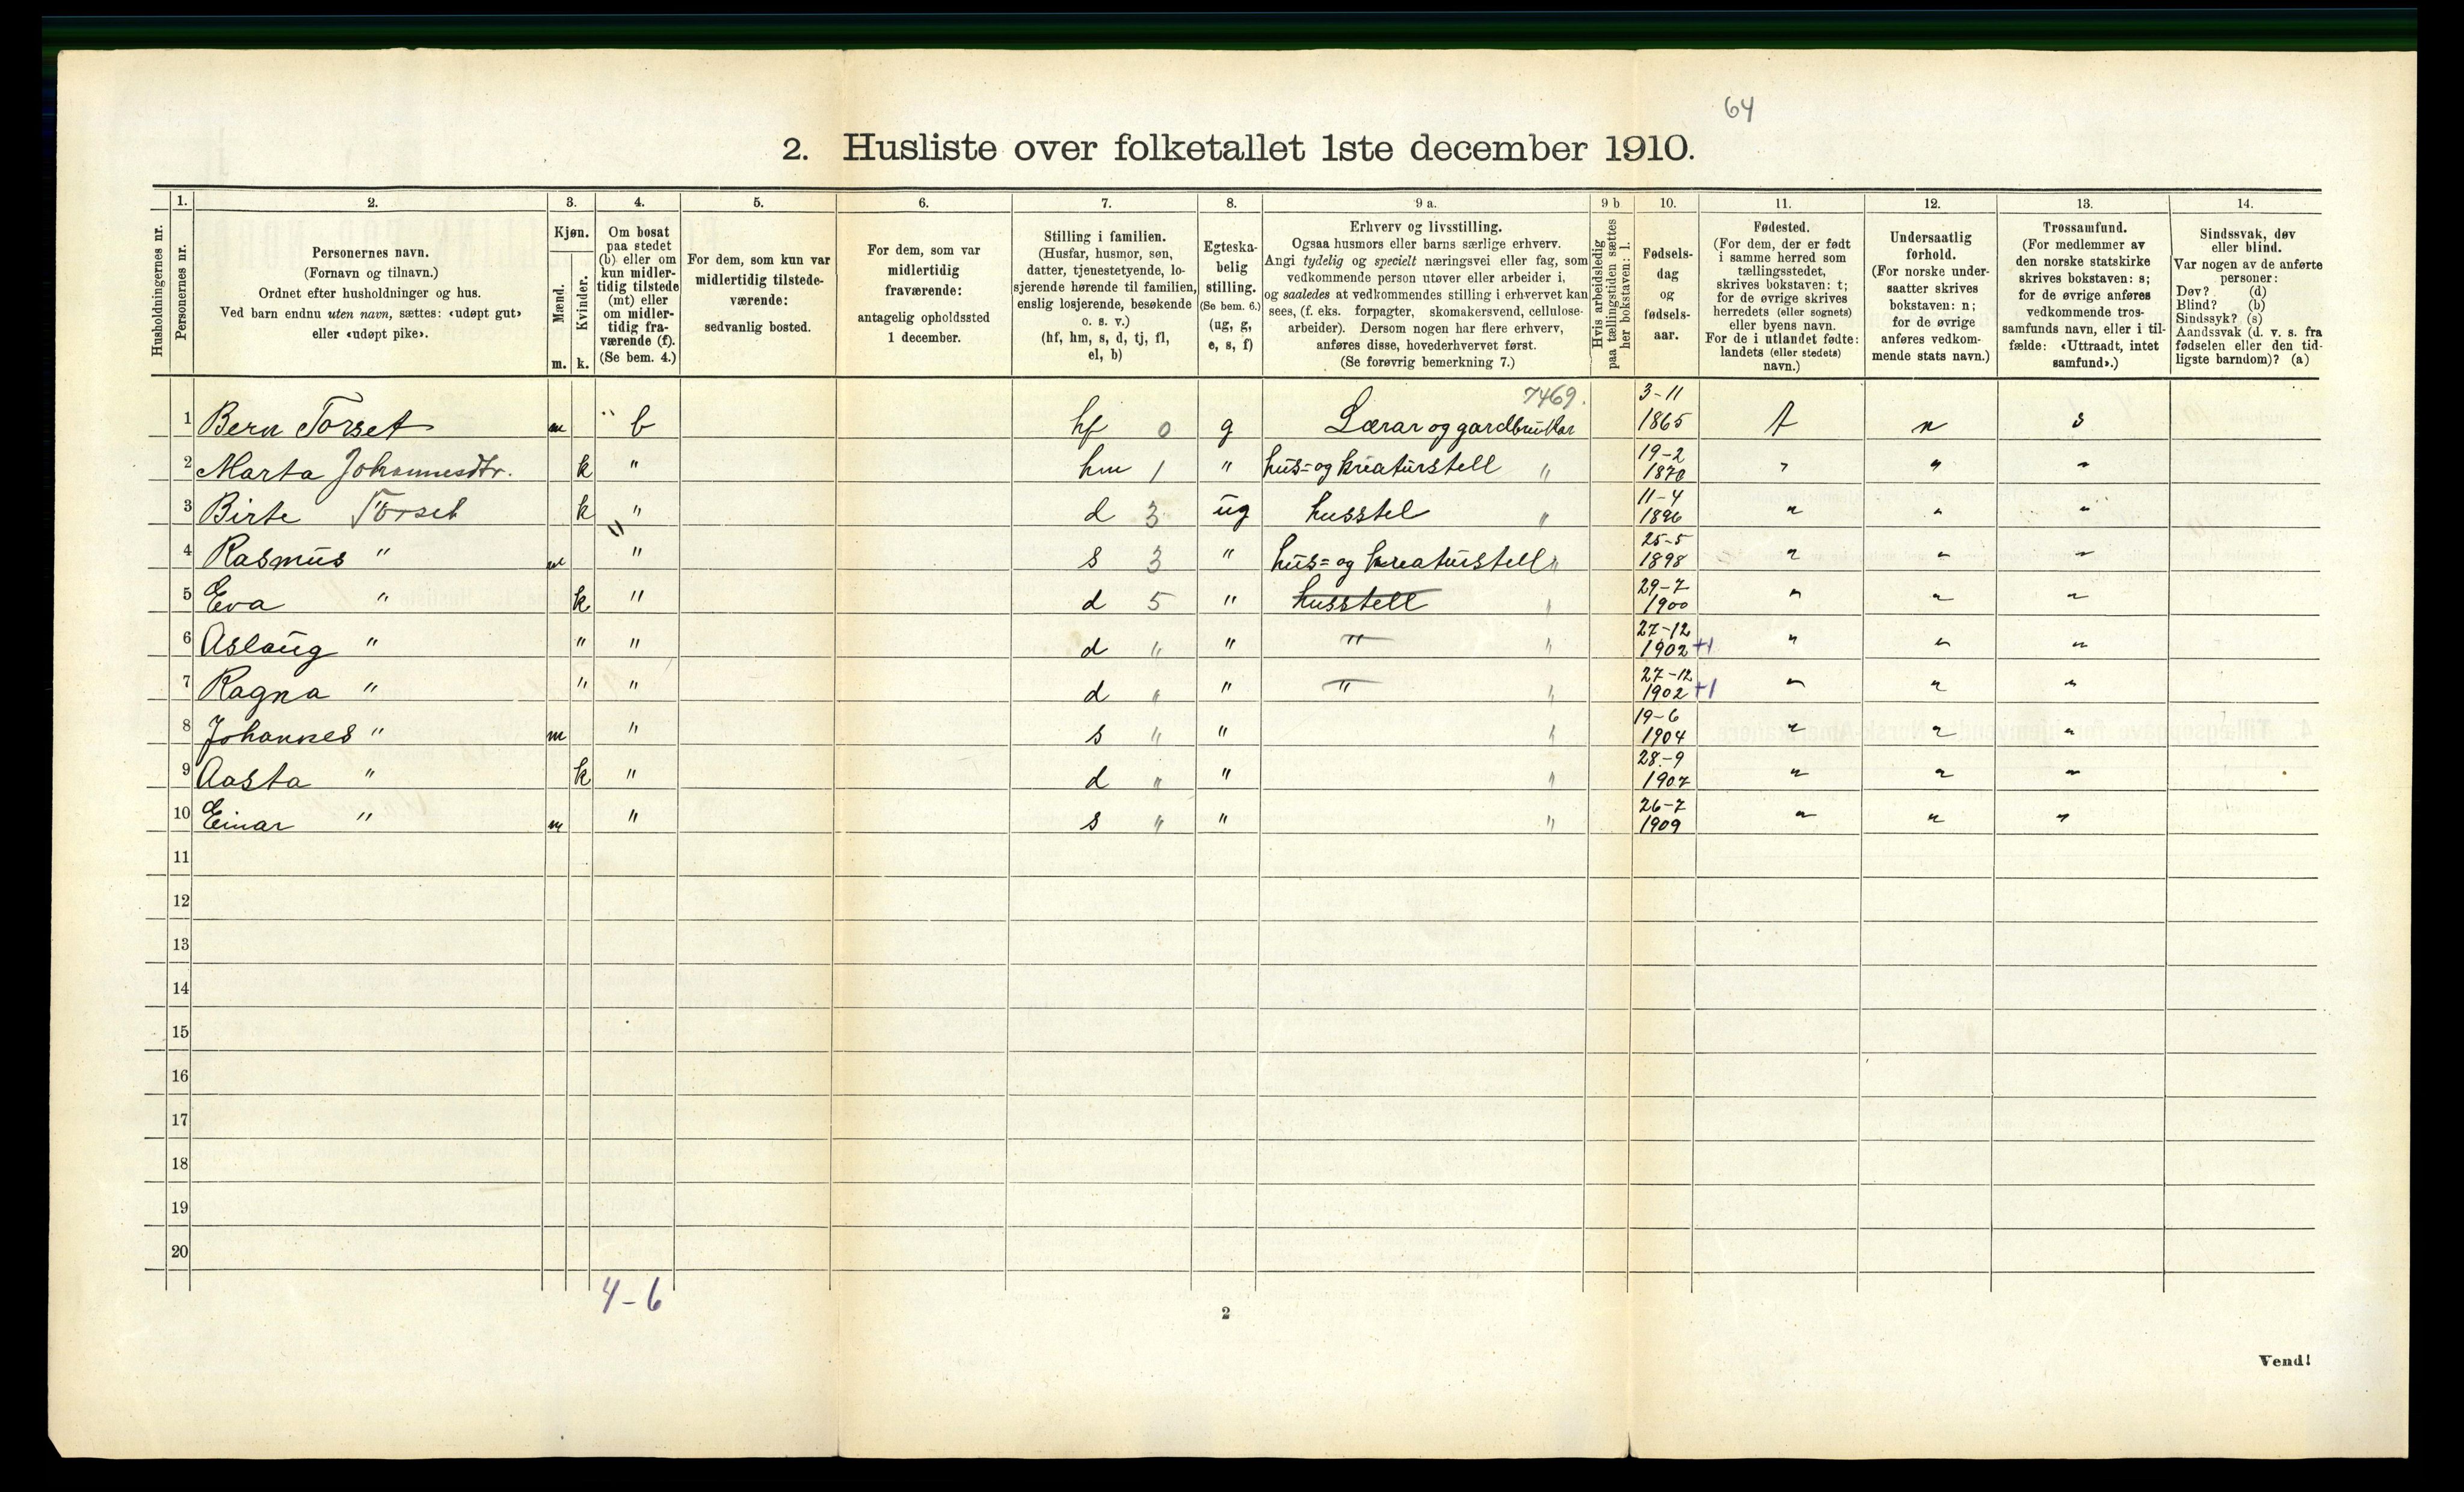 64
2. Husliste over folketallet 1ste december 1910.
Husholdningernes nr.
1.
Personernes nr.
2.
Personernes navn.
(Fornavn og tilnavn.)
Ordnet efter husholdninger og hus.
Ved barn endnu uten navn, sættes: «udøpt gut»
eller «udøpt pike».
3.
Kjøn.
Mænd.
Kvinder.
m. k.
4.
Om bosat
paa stedet
(b) eller om
kun midler-
tidig tilstede
(mt) eller
om midler-
tidig fra-
værende (f).
(Se bem. 4.)
5.
For dem, som kun var
midlertidig tilstede-
værende:
sedvanlig bosted.
6.
For dem, som var
midlertidig
fraværende:
antagelig opholdssted
1 december.
7.
Stilling i familien.
(Husfar, husmor, søn,
datter, tjenestetyende, lo-
sjerende hørende til familien,
enslig losjerende, besøkende
o. s. v.)
(hf, hm, s, d, tj, fl,
el, b)
8.
Egteska-
belig
stilling.
(Se bem. 6.)
(ug, g,
e, s, f)
9 a.
Erhverv og livsstilling.
Ogsaa husmors eller barns særlige erhverv.
Angi tydelig og specielt næringsvei eller fag, som
vedkommende person utøver eller arbeider i,
og saaledes at vedkommendes stilling i erhvervet kan
sees, (f. eks. forpagter, skomakersvend, cellulose-
arbeider). Dersom nogen har flere erhverv,
anføres disse, hovederhvervet først.
(Se forøvrig bemerkning 7.)
9 b
Hvis arbeidsledig
paa tællingstiden sættes
her bokstaven: l.
10.
Fødsels-
dag
og
fødsels-
aar.
11.
Fødested.
(For dem, der er født
i samme herred som
tællingsstedet,
skrives bokstaven: t;
for de øvrige skrives
herredets (eller sognets)
eller byens navn.
For de i utlandet fødte:
landets (eller stedets)
navn.)
12.
Undersaatlig
forhold.
(For norske under-
saatter skrives
bokstaven: n;
for de øvrige
anføres vedkom-
mende stats navn.)
13.
Trossamfund.
(For medlemmer av
den norske statskirke
skrives bokstaven: s;
for de øvrige anføres
vedkommende tros-
samfunds navn, eller i til-
fælde: «Uttraadt, intet
samfund».)
14.
Sindssvak, døv
eller blind.
Var nogen av de anførte
personer:
Døv? (d)
Blind? (b)
Sindssyk? (s)
Aandssvak (d. v. s. fra
fødselen eller den tid-
ligste barndom)? (a)
1 Bern Torset m b hf 0 g 7469. Lærar og gardbrukar 3-11 1865 t n s
2 Marta Johannesdtr. k " hm 1 " hus= og kreaturstell " 19-2 1870 " " "
3 Birte Torset k " d 3 ug husstel " 11-4 1896 " " "
4 Rasmus " m " s 3 " hus= og kreaturstell " 25-5 1898 " " "
5 Eva " k " d 5 " husstell " 29-7 1900 " " "
6 Aslaug " " " d " " " " 27-12 1902 +1 " " "
7 Ragna " " " d " " " " 27-12 1902 +1 " " "
8 Johannes " m " s " " " 19-6 1904 " " "
9 Aasta " k " d " " " 28-9 1907 " " "
10 Einar " m " s " " " 26-7 1909 " " "
11
12
13
14
15
16
17
18
19
20
4-6
2
Vend!